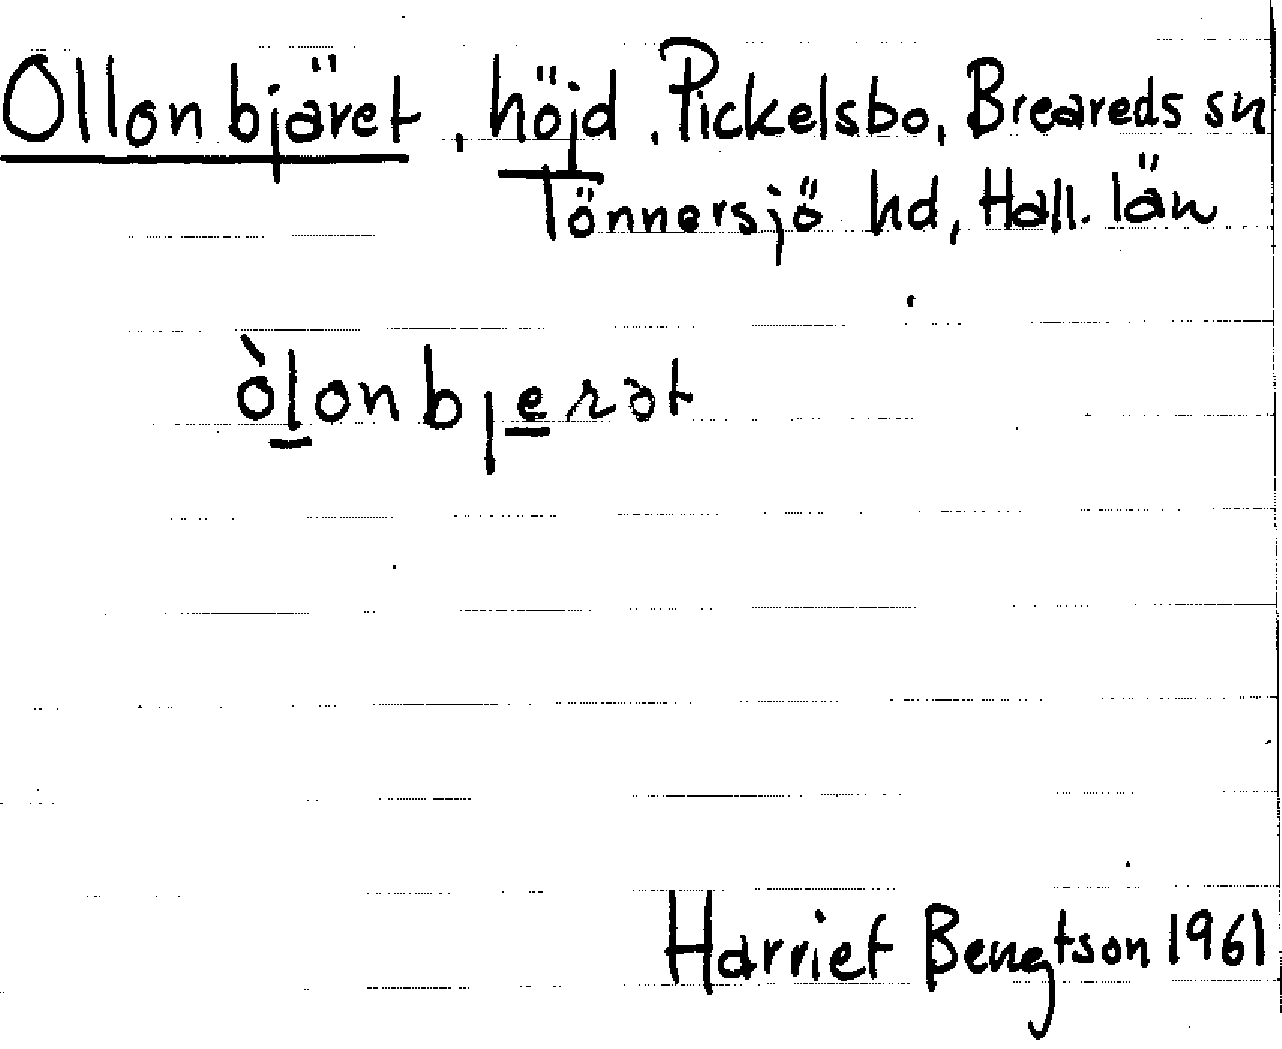 Ollonbjäret, höjd, Pickelsbo, Breareds sn
Tönnersjö hd, Hall. län
òlonbjerət
Harriet Bengtson 1961